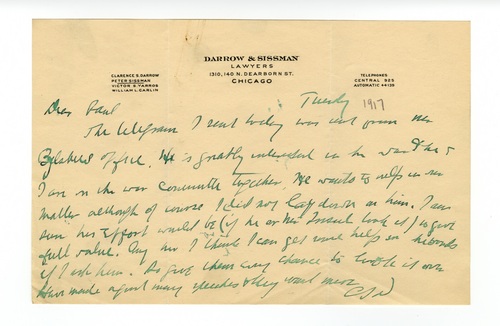 DARROW & SISSMAN
LAWYERS
1310, 140 N. DEARBORN ST.
CHICAGO
CLARENCE S. DARROW
PETER SISSMAN
VICTOR S. YARROS
WILLIAM L. CARLIN
TELEPHONES
CENTRAL 925
AUTOMATIC 44-139
Tuesday 1917
Dear Paul
The telegram I sent today was sent from
office. He is greatly interested in the war & he &
I are on the war committee together. He wants to help in
matter although of course I did not lay down on him. I am
sure his effort would be (if he or Insull look at) to give
full value. I think I can get some help
if I ask him. So give them every chance to look it over
Have made a good many speeches & they want more
CSD